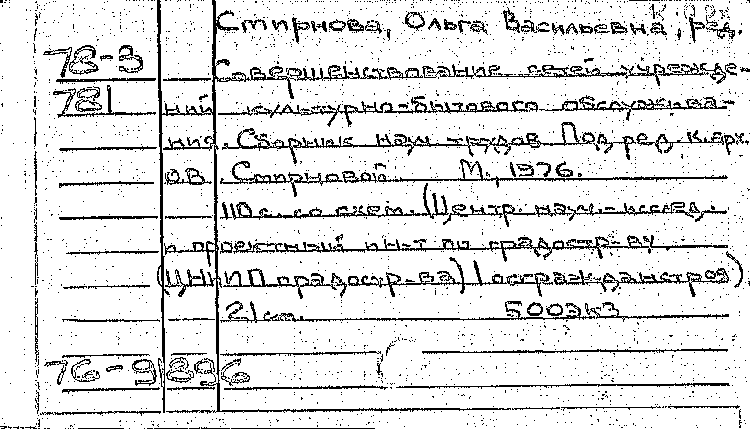 Смирнова, Ольга Васильевна, ред.
78-3 Совершенствование сетей учрежде-
781 ний культурно-бытового обслужива-
ния. Сборник науч. трудов. Под ред. к. арх.
О.В. Смирновой. М., 1976.
110 с. со схем. (Центр. науч.-исслед.
и проектный ин-т по градостр-ву
(ЦНИИП градостр-ва) Госгражданстроя).
21 см. 500 экз
76-91896